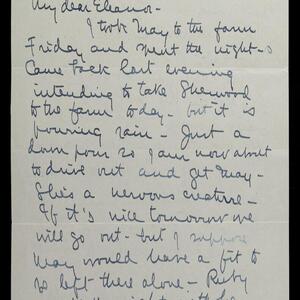 My dear Eleanor -
I took May to the farm
Friday and spent the night - &
Came back last evening
intending to take Sherwood
to the farm today - but it is
pouring rain - Just a
down pour so I am now about
to drive out and get May -
She's a nervous creature -
If it's nice tomorrow we
will go out - but I suppose
May would have a fit to
be left there alone - Ruby